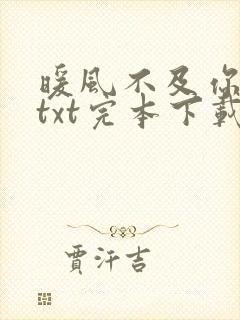 暖風不及你
txt完本下載
賈汗吉